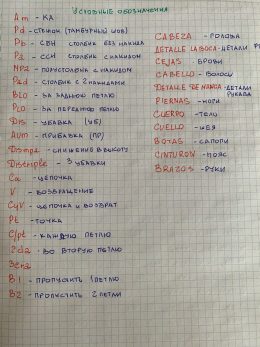 Условные обозначения
Am - КА
Pd - стенон (тамбурный шов)
Pb - СБН столбик без накида
Pa - ССН столбик с накидом
Mpa - полустолбик с накидом
BLO - за заднюю петлю
FLO - за переднюю петлю
Dis - убавка (УБ)
Aum - прибавка (ПР)
Dismpa - снижение в высоту
Distriple - 3 убавки
Ca - цепочка
V - возвращение
CyV - цепочка и возврат
Pt - точка
C/pt - каждую петлю
2cia - во вторую петлю
3era
B1 - пропустить 1 петлю
B2 - пропустить 2 петли
CABEZA - голова
DETALLE LA BOCA - детали
CEJAS - брови
CABELLO - волосы
DETALLE DE MANGA - детали рукава
PIERNAS - ноги
CUERPO - тело
CUELLO - шея
BOTAS - сапоги
CINTURON - пояс
BRAZOS - руки